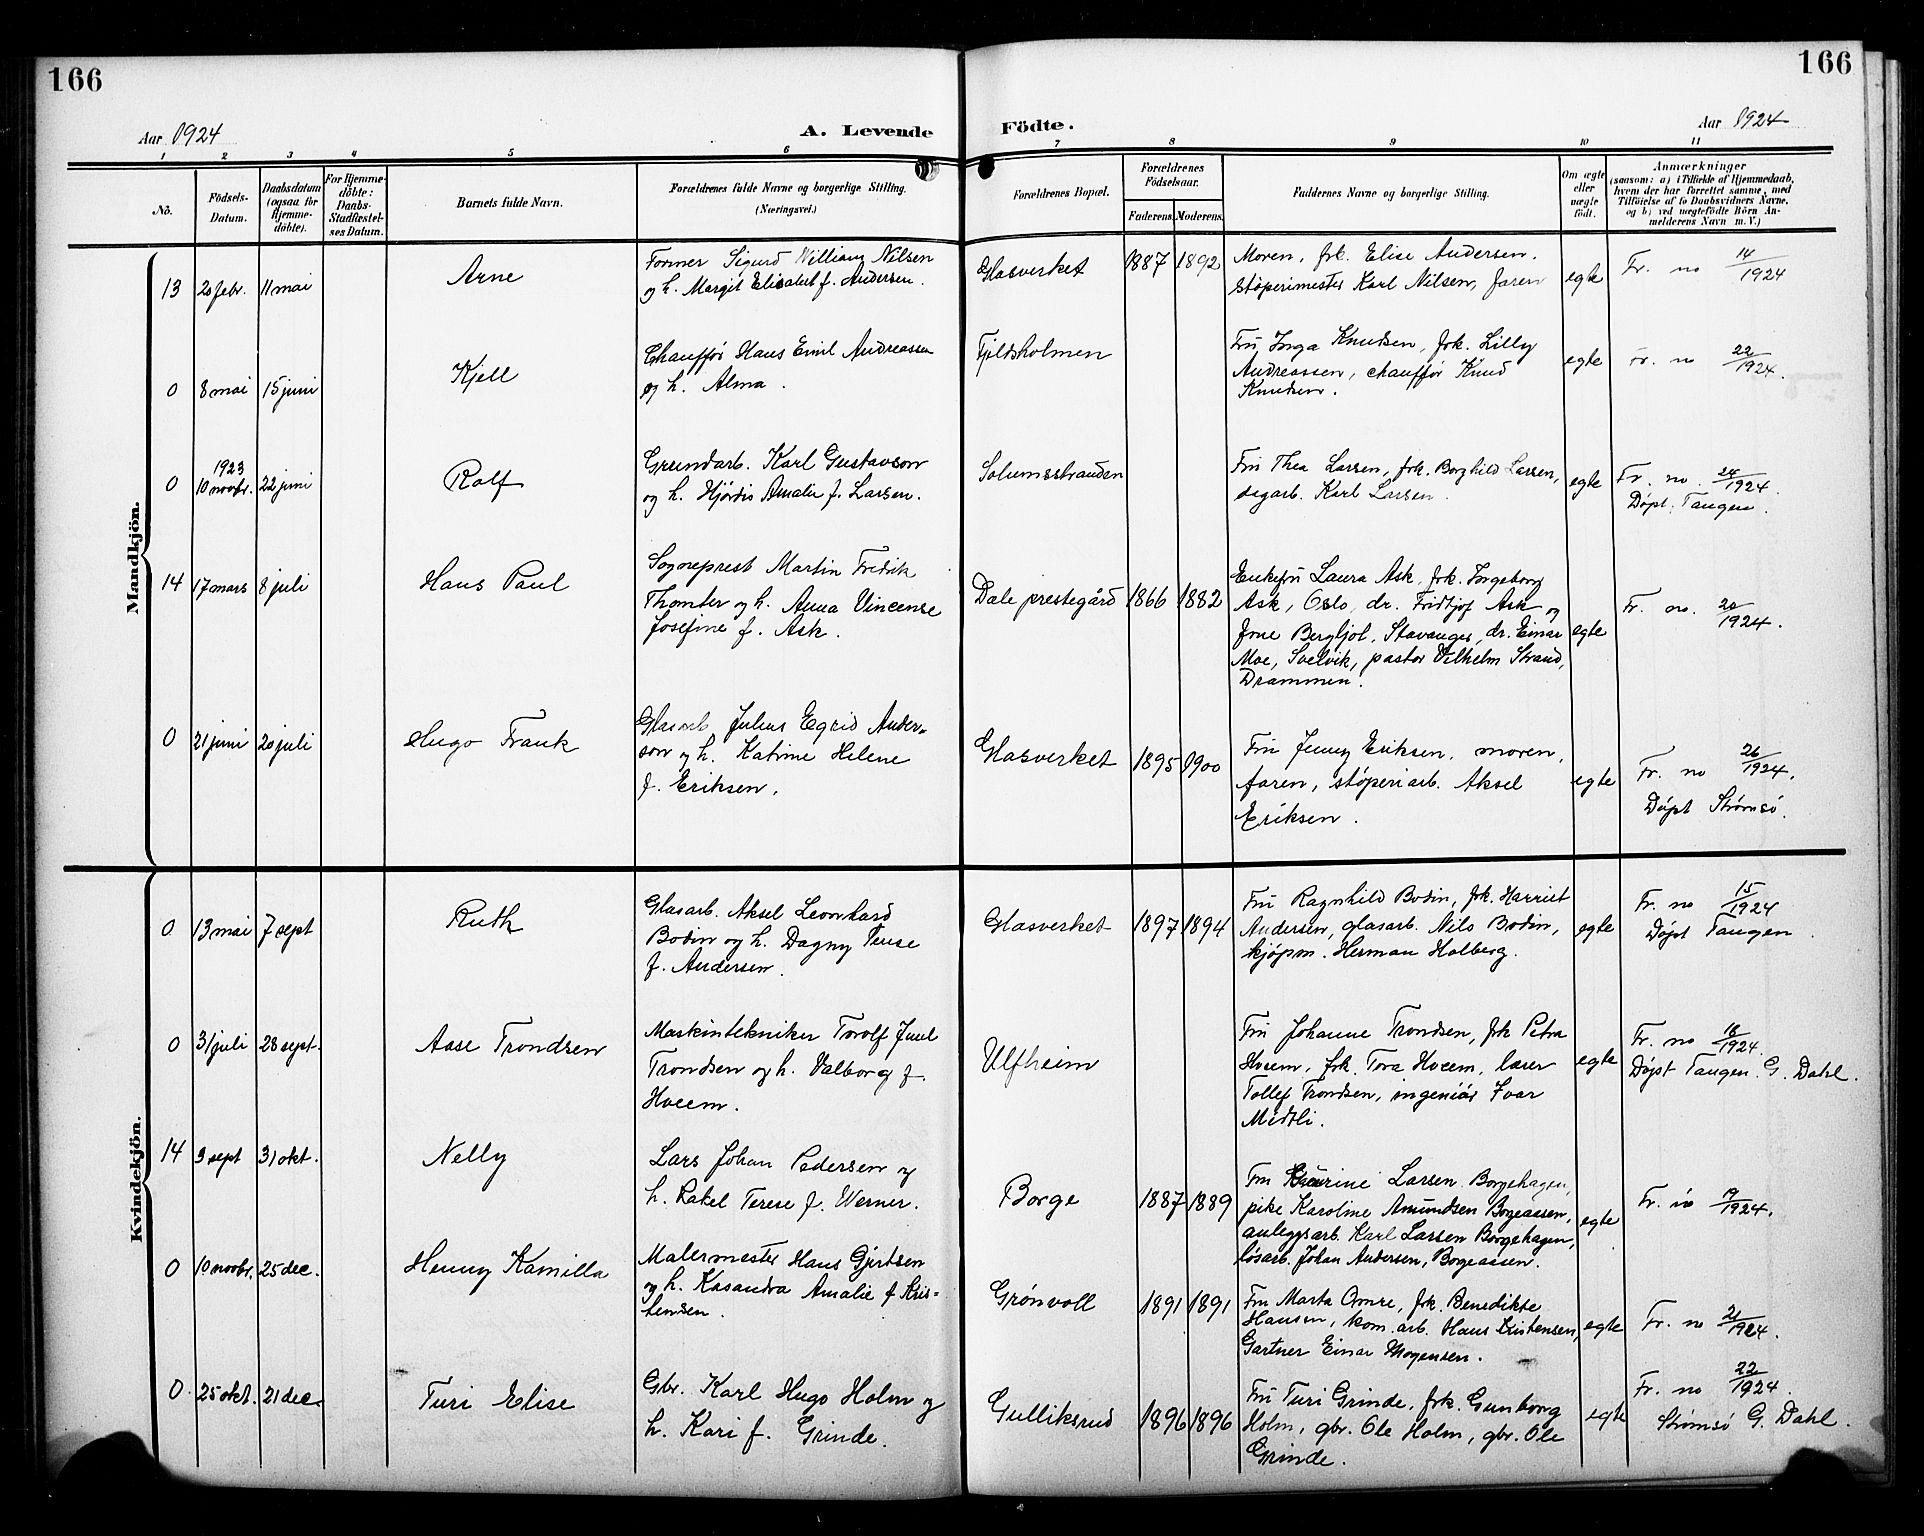 166
166
Aar 1924
A. Levende
Födte.
Aar 1924
1 2 3 4 5 6 7 8 9 10 11
No.
Födsels-
Datum.
Daabsdatum
(ogsaa for
Hjemme-
döbte).
For Hjemme-
döbte:
Daabs-
Stadfæstel-
ses Datum.
Barnets fulde Navn.
Forældrenes fulde Navne og borgerlige Stilling.
(Næringsvei.)
Forældrenes Bopæl.
Forældrenes
Födselsaar.
Faderens. Moderens.
Faddernes Navne og borgerlige Stilling.
Om ægte
eller
uægte
födt.
Anmærkninger
(saasom: a) i Tilfælde af Hjemmedaab,
hvem der har forrettet samme, med
Tilföielse af to Daabsvidners Navne,
og b) ved uægtefödte Börn An-
melderens Navn m. V.)
Mandkjön.
13 20 febr. 11 mai
Arne
Former Sigurd William Nilsen
og h. Margit Elisabet f. Andersen.
Glasverket 1887 1892
Moren, frk. Elise Andersen.
støperimester Karl Nilsen, faren
egte
Fr. no 14/1924
0 8 mai 15 juni
Kjell
Chauffør Hans Emil Andreassen
og h. Alma.
Fjeldsholmen
Fru Inga Knudsen, frk. Lilly
Andreassen, chauffør Knud
Knudsen.
egte
Fr. no 22/1924.
0 1923
10 novbr. 22 juni
Rolf
Grundarb. Karl Gustavson
og h. Hjørdis Amalie f. Larsen.
Solumsstranden
Fru Thea Larsen, frk. Borghild Larsen,
sagarb. Karl Larsen.
egte
Fr. no. 24/1924.
Døpt: Tangen.
14 17 mars 8 juli
Hans Paul
Sogneprest Martin Fredrik
Thomter og h. Anna Vincense
Josefine f. Ask.
Dale prestegård 1866 1882
Enkefru Laura Ask, frk. Ingeborg
Ask, Oslo, dr. Fridtjof Ask og
frue Bergljot, Stavanger, dr. Einar
Moe, Svelvik, pastor Vilhelm Strand,
Drammen.
egte
Fr. no. 20/1924.
0 21 juni 20 juli
Hugo Frank
Glasarb. Julius Egrid Ander-
son og h. Katrine Helene
f. Eriksen.
Glasverket 1895 1900
Fru Jenny Eriksen, moren,
faren, støperiarb. Aksel
Eriksen.
egte
Fr. no 26/1924.
Døpt Strømsø.
Kvindekjön.
0 13 mai 7 sept
Ruth
Glasarb. Aksel Leonhard
Bodin og h. Dagny Tense
f. Andersen.
Glasverket 1897 1894
Fru Ragnhild Bodin, frk. Harriet
Andersen, glasarb. Nils Bodin,
kjøpm. Herman Holberg.
egte
Fr. no 15/1924
Døpt Tangen
0 31 juli 28 sept.
Aase Trondsen
Maskintekniker Torolf Juul
Trondsen og h. Valborg f.
Hveem.
Ulfheim
Fru Johanne Trondsen, frk Petra
Hveem, frk. Tora Hveem, lærer
Tollef Trondsen, ingeniør Ivar
Midtli.
egte
Fr. no 18/1924.
Døpt Tangen. G. Dahl.
14 9 sept 31 okt.
Nelly
Lars Johan Pedersen og
h. Rakel Terese f. Werner.
Borge 1887 1889
Fru Larsen Borgehagen,
pike Karoline Amundsen Borgeassen,
anleggsarb. Karl Larsen Borgehagen,
løsarb. Johan Andersen, Borgeassen.
egte
Fr. no 19/1924.
0 10 novbr. 25 dec.
Henny Kamilla
Malermester Hans Gjertsen
og h. Kasandra Amalie f Kris-
tensen.
Grønvoll 1891 1891
Fru Marta Omre, frk. Benedikte
Hansen, kom. arb. Hans Kristensen,
Gartner Einar Mogensen.
egte
Fr. no 21/1924.
0. 25 okt. 21 dec.
Turi Elise
Gbr. Karl Hugo Holm og
h. Kari f. Grinde.
Gulliksrud 1896 1896
Fru Turi Grinde, frk. Gunborg
Holm, gbr. Ole Holm, gbr. Ole
Grinde.
egte
Fr. no 22/1924.
Strømsø G. Dahl.